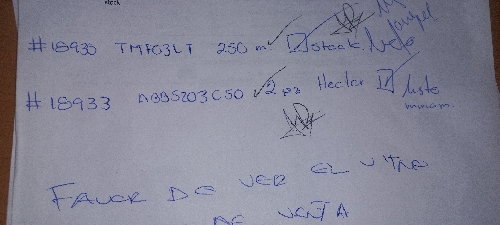 stock
#18935 TMF03LT 250 m stock listo
#18933 ABBS203C50 2 pz Hector listo
FAVOR DE VER EL
DE VENTA